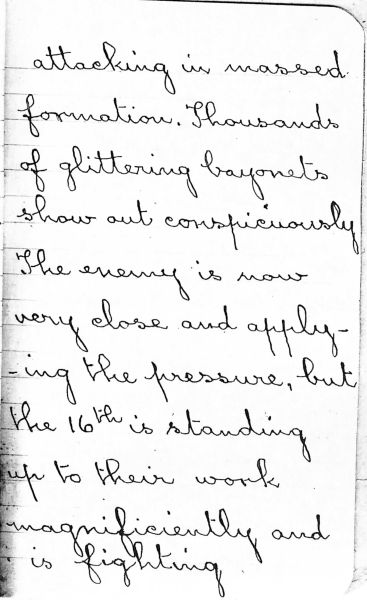 attacking in massed
formation. Thousands
of glittering bayonets
show out conspicuously
The enemy is now
very close and apply-
-ing the pressure, but
the 16th is standing
up to their work
magnificiently and
is fighting